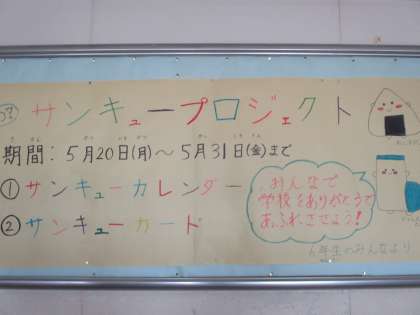 サンキュープロジェクト
期間:5月20日(月)～5月31日(金)まで
①サンキューカレンダー
②サンキューカード
みんなで
学校をありがとうで
あふれさせよう!
6年生のみんなより